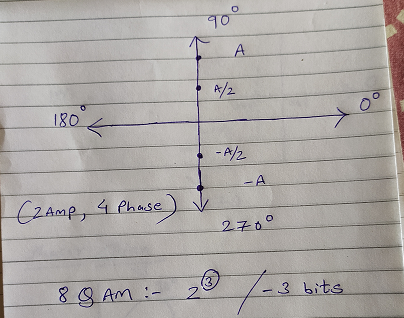 90°
A
A/2
180°
0°
-A/2
-A
(2Amp, 4 Phase)
270°
8 QAM :- 2③ / -3 bits